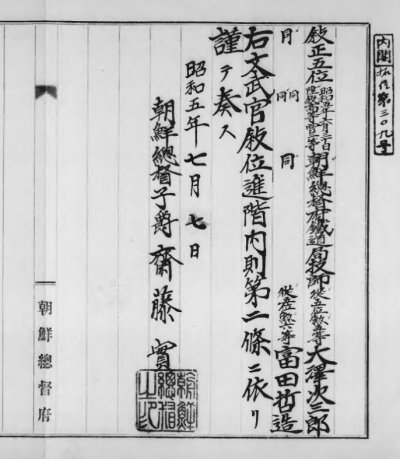 内閣 拓 第三〇九号
敍正五位 朝鮮總督府鐵道局技師 從五位勲五等 大澤次三郎
同 同 同 同 從五位勲六等 富田哲造
右文武官敍位進階内則第二條ニ依リ
謹テ奏ス
昭和五年七月七日
朝鮮總督子爵 齋藤實
朝鮮總督之印
朝鮮總督府